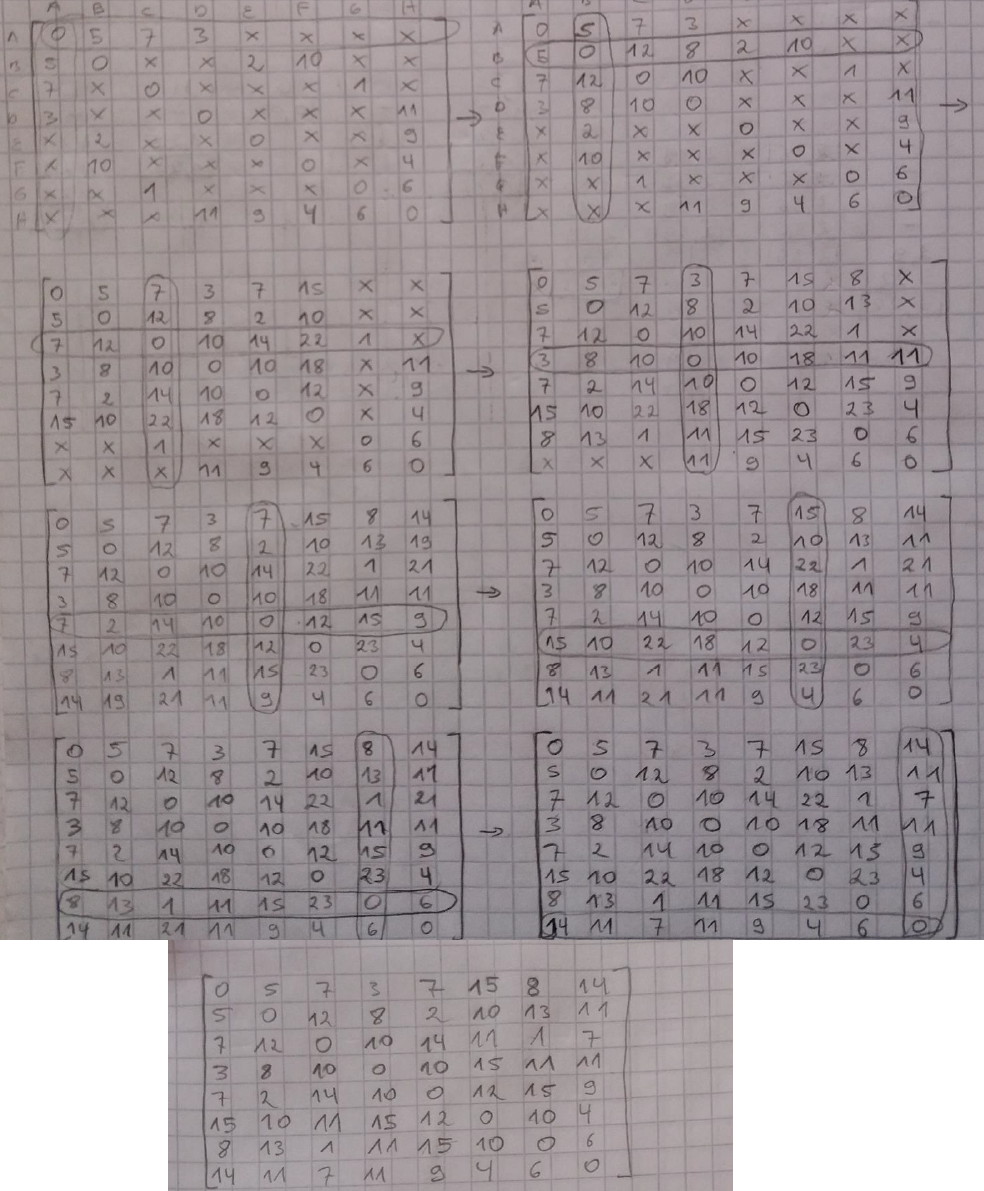 A B C D E F G H
A 0 5 7 3 x x x x
B 5 0 x x 2 10 x x
C 7 x 0 x x x 1 x
D 3 x x 0 x x x 11
E x 2 x x 0 x x 9
F x 10 x x x 0 x 4
G x x 1 x x x 0 6
H x x x 11 9 4 6 0
→
A B
A 0 5 7 3 x x x x
B 5 0 12 8 2 10 x x
C 7 12 0 10 x x 1 x
D 3 8 10 0 x x x 11
E x 2 x x 0 x x 9
F x 10 x x x 0 x 4
G x x 1 x x x 0 6
H x x x 11 9 4 6 0
→
0 5 7 3 7 15 x x
5 0 12 8 2 10 x x
7 12 0 10 14 22 1 x
3 8 10 0 10 18 x 11
7 2 14 10 0 12 x 9
15 10 22 18 12 0 x 4
x x 1 x x x 0 6
x x x 11 9 4 6 0
→
0 5 7 3 7 15 8 x
5 0 12 8 2 10 13 x
7 12 0 10 14 22 1 x
3 8 10 0 10 18 11 11
7 2 14 10 0 12 15 9
15 10 22 18 12 0 23 4
8 13 1 11 15 23 0 6
x x x 11 9 4 6 0
0 5 7 3 7 15 8 14
5 0 12 8 2 10 13 19
7 12 0 10 14 22 1 21
3 8 10 0 10 18 11 11
7 2 14 10 0 12 15 9
15 10 22 18 12 0 23 4
8 13 1 11 15 23 0 6
14 19 21 11 9 4 6 0
→
0 5 7 3 7 15 8 14
5 0 12 8 2 10 13 11
7 12 0 10 14 22 1 21
3 8 10 0 10 18 11 11
7 2 14 10 0 12 15 9
15 10 22 18 12 0 23 4
8 13 1 11 15 23 0 6
14 11 21 11 9 4 6 0
0 5 7 3 7 15 8 14
5 0 12 8 2 10 13 11
7 12 0 10 14 22 1 21
3 8 10 0 10 18 11 11
7 2 14 10 0 12 15 9
15 10 22 18 12 0 23 4
8 13 1 11 15 23 0 6
14 11 21 11 9 4 6 0
→
0 5 7 3 7 15 8 14
5 0 12 8 2 10 13 11
7 12 0 10 14 22 1 7
3 8 10 0 10 18 11 11
7 2 14 10 0 12 15 9
15 10 22 18 12 0 23 4
8 13 1 11 15 23 0 6
14 11 7 11 9 4 6 0
0 5 7 3 7 15 8 14
5 0 12 8 2 10 13 11
7 12 0 10 14 11 1 7
3 8 10 0 10 15 11 11
7 2 14 10 0 12 15 9
15 10 11 15 12 0 10 4
8 13 1 11 15 10 0 6
14 11 7 11 9 4 6 0